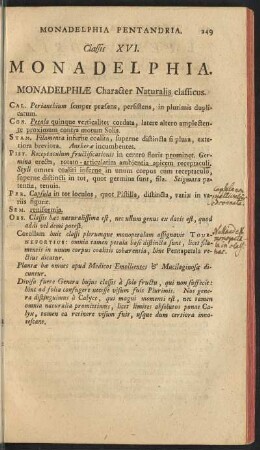 MONADELPHIA PENTANDRIA. 249
Classis XVI.
MONADELPHIA.
MONADELPHIÆ Character Naturalis classicus.
CAL. Perianthium semper præsens, persistens, in plurimis dupli-
catum.
COR. Petala quinque verticaliter cordata, latere altero amplecten-
te proximum contra motum Solis.
STAM. Filamenta inferne coalita, superne distincta si plura, exte-
riora breviora. Antheræ incumbentes.
PIST. Receptaculum fructificationis in centro floris prominet. Ger-
mina erecta, rotato-articulatim ambientia apicem receptaculi,
Styli omnes coaliti inferne in unum corpus cum receptaculo,
superne distincti in tot, quot germina sunt, fila. Stigmata pa-
tentia, tenuia.
PER. Capsula in tot loculos, quot Pistilla, distincta, varia in va-
riis figura.
SEM. reniformia.
OBS. Classis hæc naturalissima est, nec ullum genus ea daxis est, quod
addi vel demi potest.
Corollam huic classi plerumque monopetalam assignavit TOUR-
NEFORTIUS; omnia tamen petala basi distincta sunt, licet fila-
mentis in unum corpus coalitis cohærentia, hinc Pentapetala rec-
tius dicatur.
Plantæ hæ omnes apud Medicos Emollientes & Mucilaginosæ di-
cuntur.
Divisa fuere Genera hujus classis à solo fructu, qui non sufficit:
hinc ad folia confugere necesse visum fuit Plurimis. Nos gene-
ra distinguimus à Calyce, qui magni momenti est, nec tamen
omnia naturalia promittimus, licet limites absolutos ponat Ca-
lyx, tamen ea retinere visum fuit, usque dum certiora inno-
tescant.